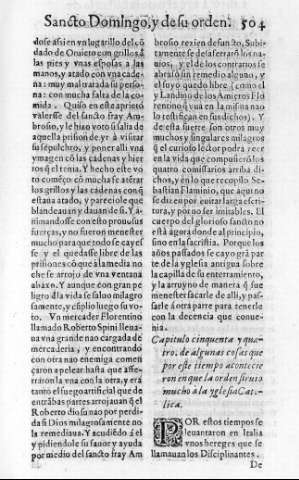 Sancto Domingo, y de su orden. 504
dose assi en vn lugarillo del cõ
dado de Oruieto con grillos â
las pies y vnas esposas a las
manos, y atado con vna cade
na: muy maltratada su perso
na: con mucha falta de la co
mida. Quiso en este aprieto
valerse del sancto fray Am
brosio, y le hizo voto si salia de
aquella prison de yr â visitar
su sepulchro, y poner alli vna
ymagen cõ las cadenas y hier
ros q̃ el tenia. Y hecho este vo
to començo cõ mucha fe a asser
los grillos y las cadenas con q̃
estaua atado, y pareciole que
blandeauan y dauan de si. Y a-
nimandose con esto prouo sus
fuerças, y no fueron menester
mucho para que todo se cayes
se y el quedasse libre de las
prisiones: cõque a la media no
che se arrojo de vna ventana
abaxo. Y aunque con gran pe
ligro dla vida se saluo milagro
samente, y cũplio luego su vo-
to. Vn mercader Florentino
llamado Roberto Spini lleua-
ua vna grande nao cargada de
mercaderia, y encontrando
con otra nao enemiga comen
çaron a pelear hasta que affe-
rraron la vna con la otra, y erà
tanto el fuego artificial que de
entrãbas partes arrojauan q̃ el
Roberto dio su nao por perdi-
da si Dios milagrosamente no
la remediaua. Y acudiẽdo â el
y pidiendole su fauor y ayuda
por medio del sancto fray Am
brosio rezien de sancto, Subi-
tamente se desaferrarõ los na-
uios, y el de los contrarios se
abraso sin remedio alguno, y
el suyo quedo libre, (como al
y Landino de los Ameros Flo
rentino q̃ vua en la misma nao
lo testifican en sus dichos). Y
de esta suerte son otros muy
muchos y singulares milagros
q̃ el curioso lector podra ver
en la vida que compusierõ los
quatro comissarios arriba di-
chos, y en lo que recopilo Se-
bastian Flaminio, que aqui no
se diz en por euitar larga escri-
tura, y por no ser inuitables. El
cuerpo del glorioso sancto no
està agora donde al principio,
sino en la sacristia. Porque los
años passados se cayo grã par
te de la yglesia antigua sobre
la capilla de su enterramiento,
y la arruyno de manera q̃ fue
menester sacarle de alli, y pas-
sarle â otra parte para tenerle
con la decencia que conue
nia.
Capitulo cinquenta y qua-
tro. de algunas cosas que
por este tiempo acontecie
ron en que la orden siruio
mucho à la yglesia Cat-
lica.
POR estos tiempos se
leuantaron en Italia
vnos hereges que se
llamauan los Disciplinantes.
De